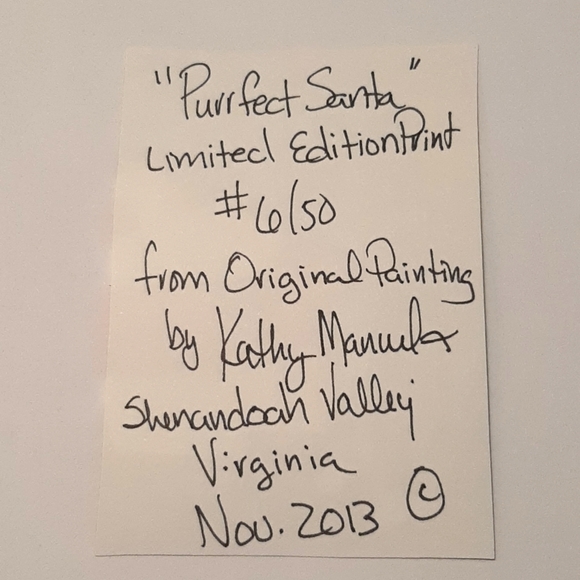 "Purrfect Santa"
Limited Edition Print
#6/50
from Original Painting
by Kathy Manuela
Shenandoah Valley
Virginia
Nov. 2013 ©